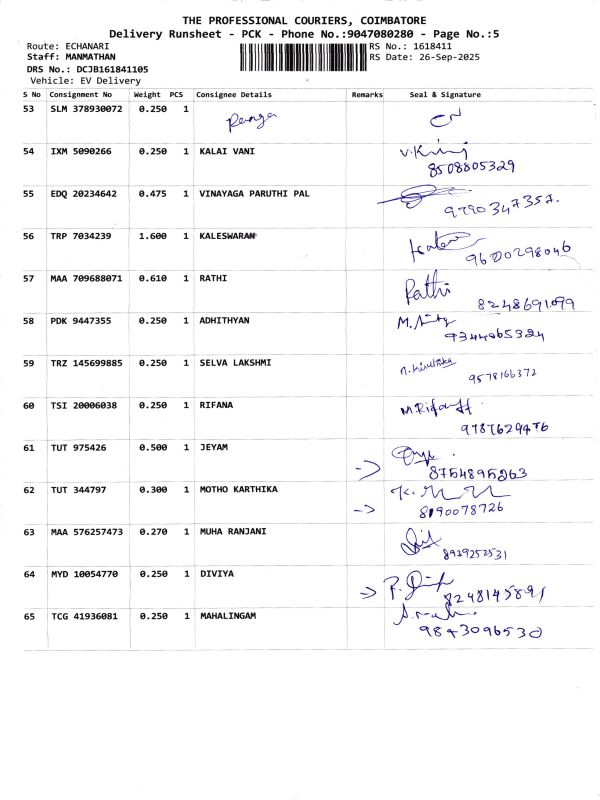 THE PROFESSIONAL COURIERS, COIMBATORE
Delivery Runsheet - PCK - Phone No.:9047080280 - Page No.:5
Route: ECHANARI
Staff: MANMATHAN
DRS No.: DCJB161841105
Vehicle: EV Delivery
RS No.: 1618411
RS Date: 26-Sep-2025
S No Consignment No Weight PCS Consignee Details Remarks Seal & Signature
53 SLM 378930072 0.250 1 Renga
54 IXM 5090266 0.250 1 KALAI VANI
8508805329
55 EDQ 20234642 0.475 1 VINAYAGA PARUTHI PAL
9790347357.
56 TRP 7034239 1.600 1 KALESWARAN
9600298046
57 MAA 709688071 0.610 1 RATHI Rathi
8248691099
58 PDK 9447355 0.250 1 ADHITHYAN
9344065324
59 TRZ 145699885 0.250 1 SELVA LAKSHMI
9578166372
60 TSI 20006038 0.250 1 RIFANA
9787629476
61 TUT 975426 0.500 1 JEYAM
8754895263
62 TUT 344797 0.300 1 MOTHO KARTHIKA
8190078726
63 MAA 576257473 0.270 1 MUHA RANJANI
8939252531
64 MYD 10054770 0.250 1 DIVIYA
8248145891
65 TCG 41936081 0.250 1 MAHALINGAM
9843096530